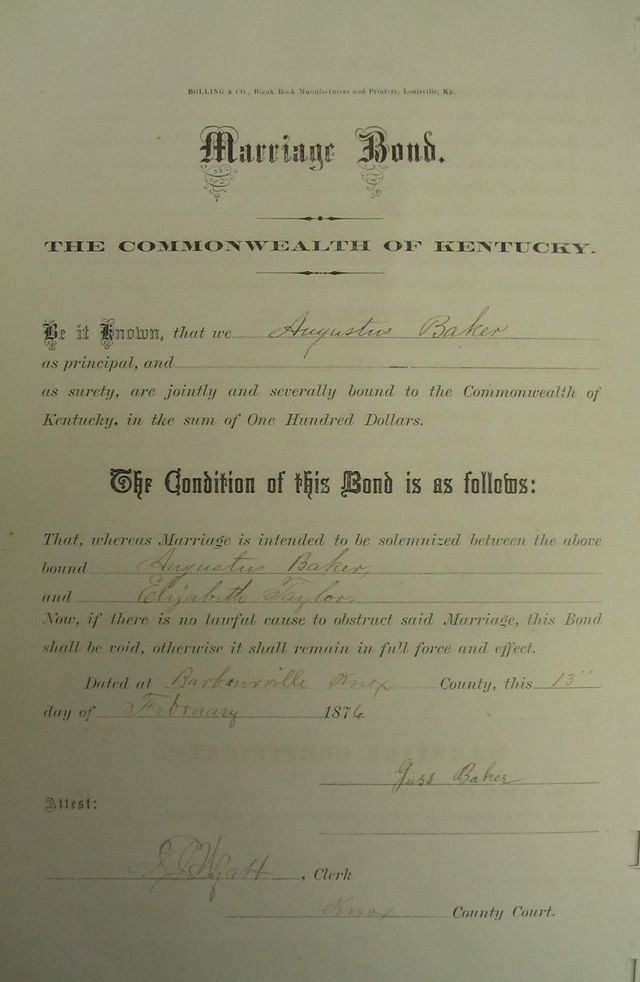 BOLLING & CO., Blank Book Manufacturers and Printers, Louisville, Ky.
Marriage Bond.
THE COMMONWEALTH OF KENTUCKY.
Be it Known, that we Augustus Baker
as principal, and
as surety, are jointly and severally bound to the Commonwealth of
Kentucky, in the sum of One Hundred Dollars.
The Condition of this Bond is as follows:
That, whereas Marriage is intended to be solemnized between the above
bound Augustus Baker,
and Elizabeth Taylor,
Now, if there is no lawful cause to obstruct said Marriage, this Bond
shall be void, otherwise it shall remain in full force and effect.
Dated at Barbourville Knox County, this 13"
day of February 1876
Guss Baker
Attest:
Wyatt, Clerk
Knox County Court.